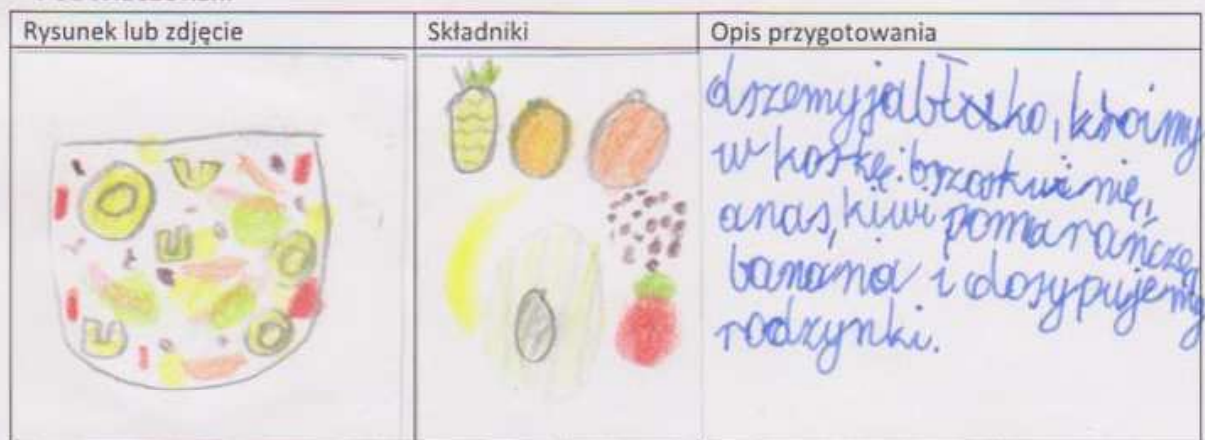 Rysunek lub zdjęcie
Składniki
Opis przygotowania
drzemy jabłusko, kroimy
w kostkę: brzoskwinię,
anas, kiwi pomarańczę,
banana i dosypujemy
rodzynki.